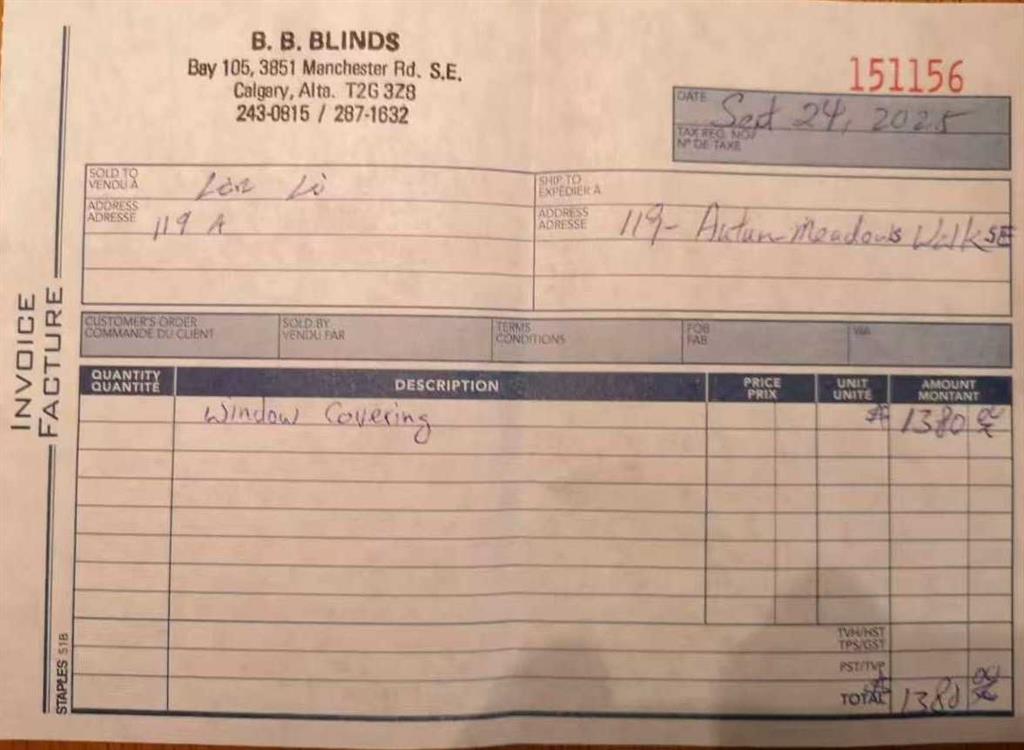 B. B. BLINDS
Bay 105, 3851 Manchester Rd. S.E.
Calgary, Alta. T2G 3Z8
243-0815 / 287-1632
151156
DATE Sept 24, 2025
TAX REG. NO/
Nº DE TAXE
SOLD TO
VENDU À
Li
ADDRESS
ADRESSE
119 A
SHIP TO
EXPÉDIER À
ADDRESS
ADRESSE
119- Autum Meadows Walk SE
CUSTOMER'S ORDER
COMMANDE DU CLIENT
SOLD BY
VENDU PAR
TERMS
CONDITIONS
FOB
FAB
VIA
INVOICE
FACTURE
QUANTITY
QUANTITÉ
DESCRIPTION
PRICE
PRIX
UNIT
UNITÉ
AMOUNT
MONTANT
Window Covering $ 1380
TVH/HST
TPS/GST
PST/TVP
TOTAL $ 1380
STAPLES 51B